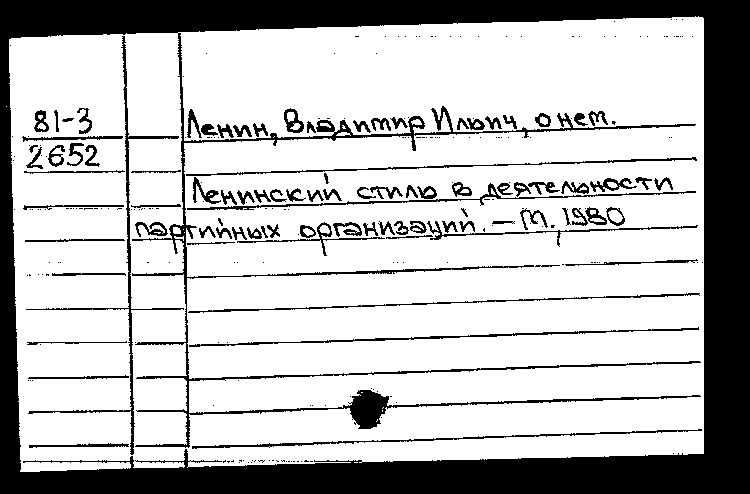 81-3
2652
Ленин, Владимир Ильич, о нем.
Ленинский стиль в деятельности
партийных организаций. – М., 1980